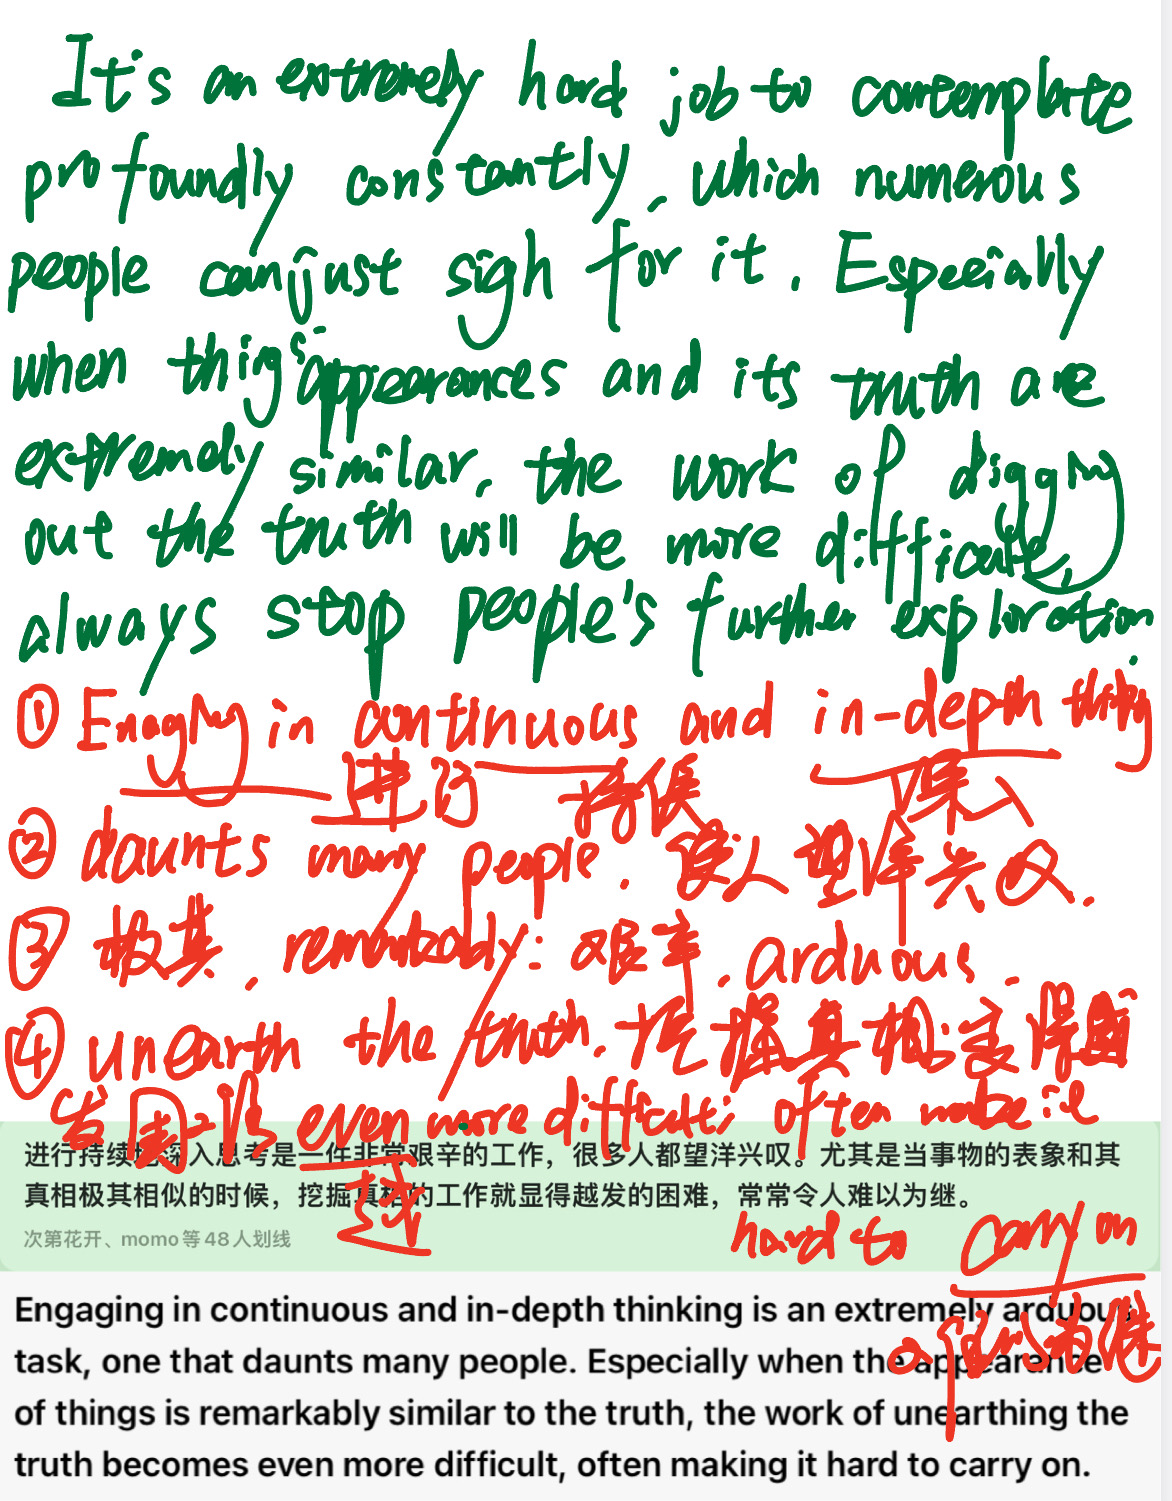 It's an extremely hard job to contemplate
profoundly constantly, which numerous
people can just sigh for it. Especially
when things' appearances and its truth are
extremely similar, the work of digging
out the truth will be more difficult,
always stop people's further exploration.
① Enagng in continuous and in-depth thinking
进行 持续 深入
② daunts many people. 使人望洋兴叹.
③ 极其. remarkably: 艰辛. arduous.
④ unearth the truth. 挖掘真相:变得
even more difficult; often make it
进行持续地深入思考是一件非常艰辛的工作，很多人都望洋兴叹。尤其是当事物的表象和其
真相极其相似的时候，挖掘真相的工作就显得越发的困难，常常令人难以为继。
越
hard to carry on
次第花开、momo等48人划线
难以为继
Engaging in continuous and in-depth thinking is an extremely arduous
task, one that daunts many people. Especially when the appearance
of things is remarkably similar to the truth, the work of unearthing the
truth becomes even more difficult, often making it hard to carry on.